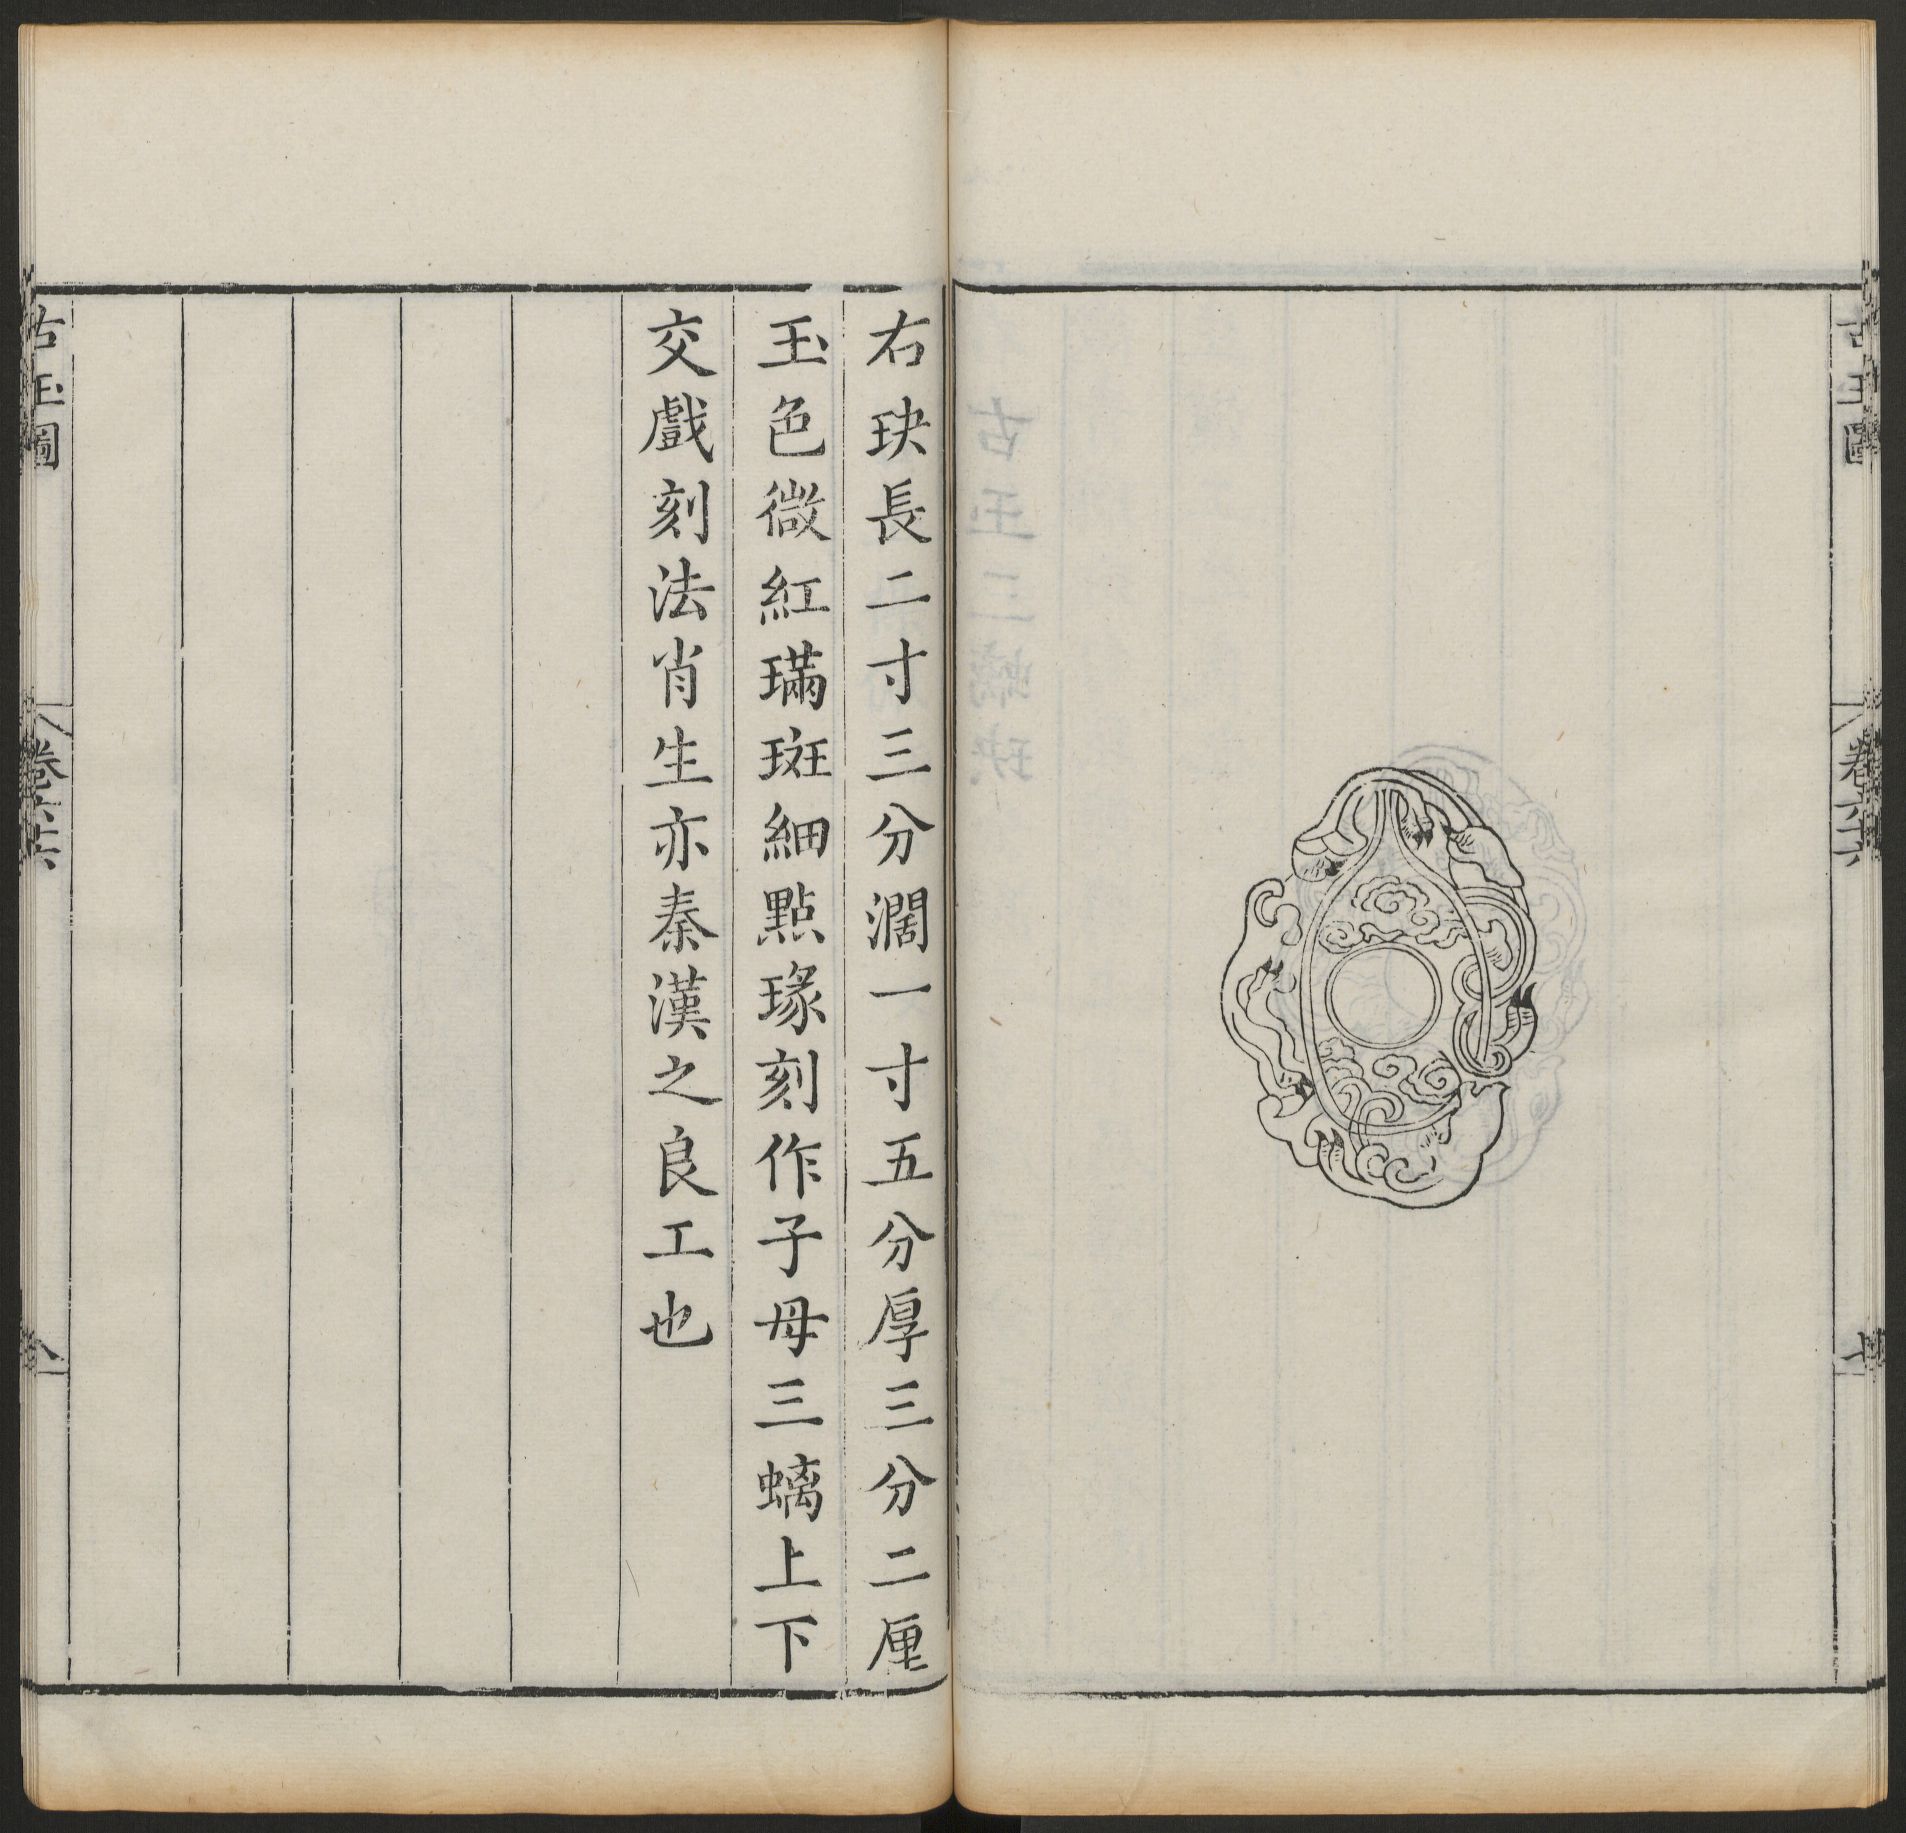 古玉圖
卷六十六
七
右玦長二寸三分濶一寸五分厚三分二厘
玉色微紅璊斑細點瑑刻作子母三螭上下
交戲刻法肖生亦秦漢之良工也
古玉圖
卷六十六
八